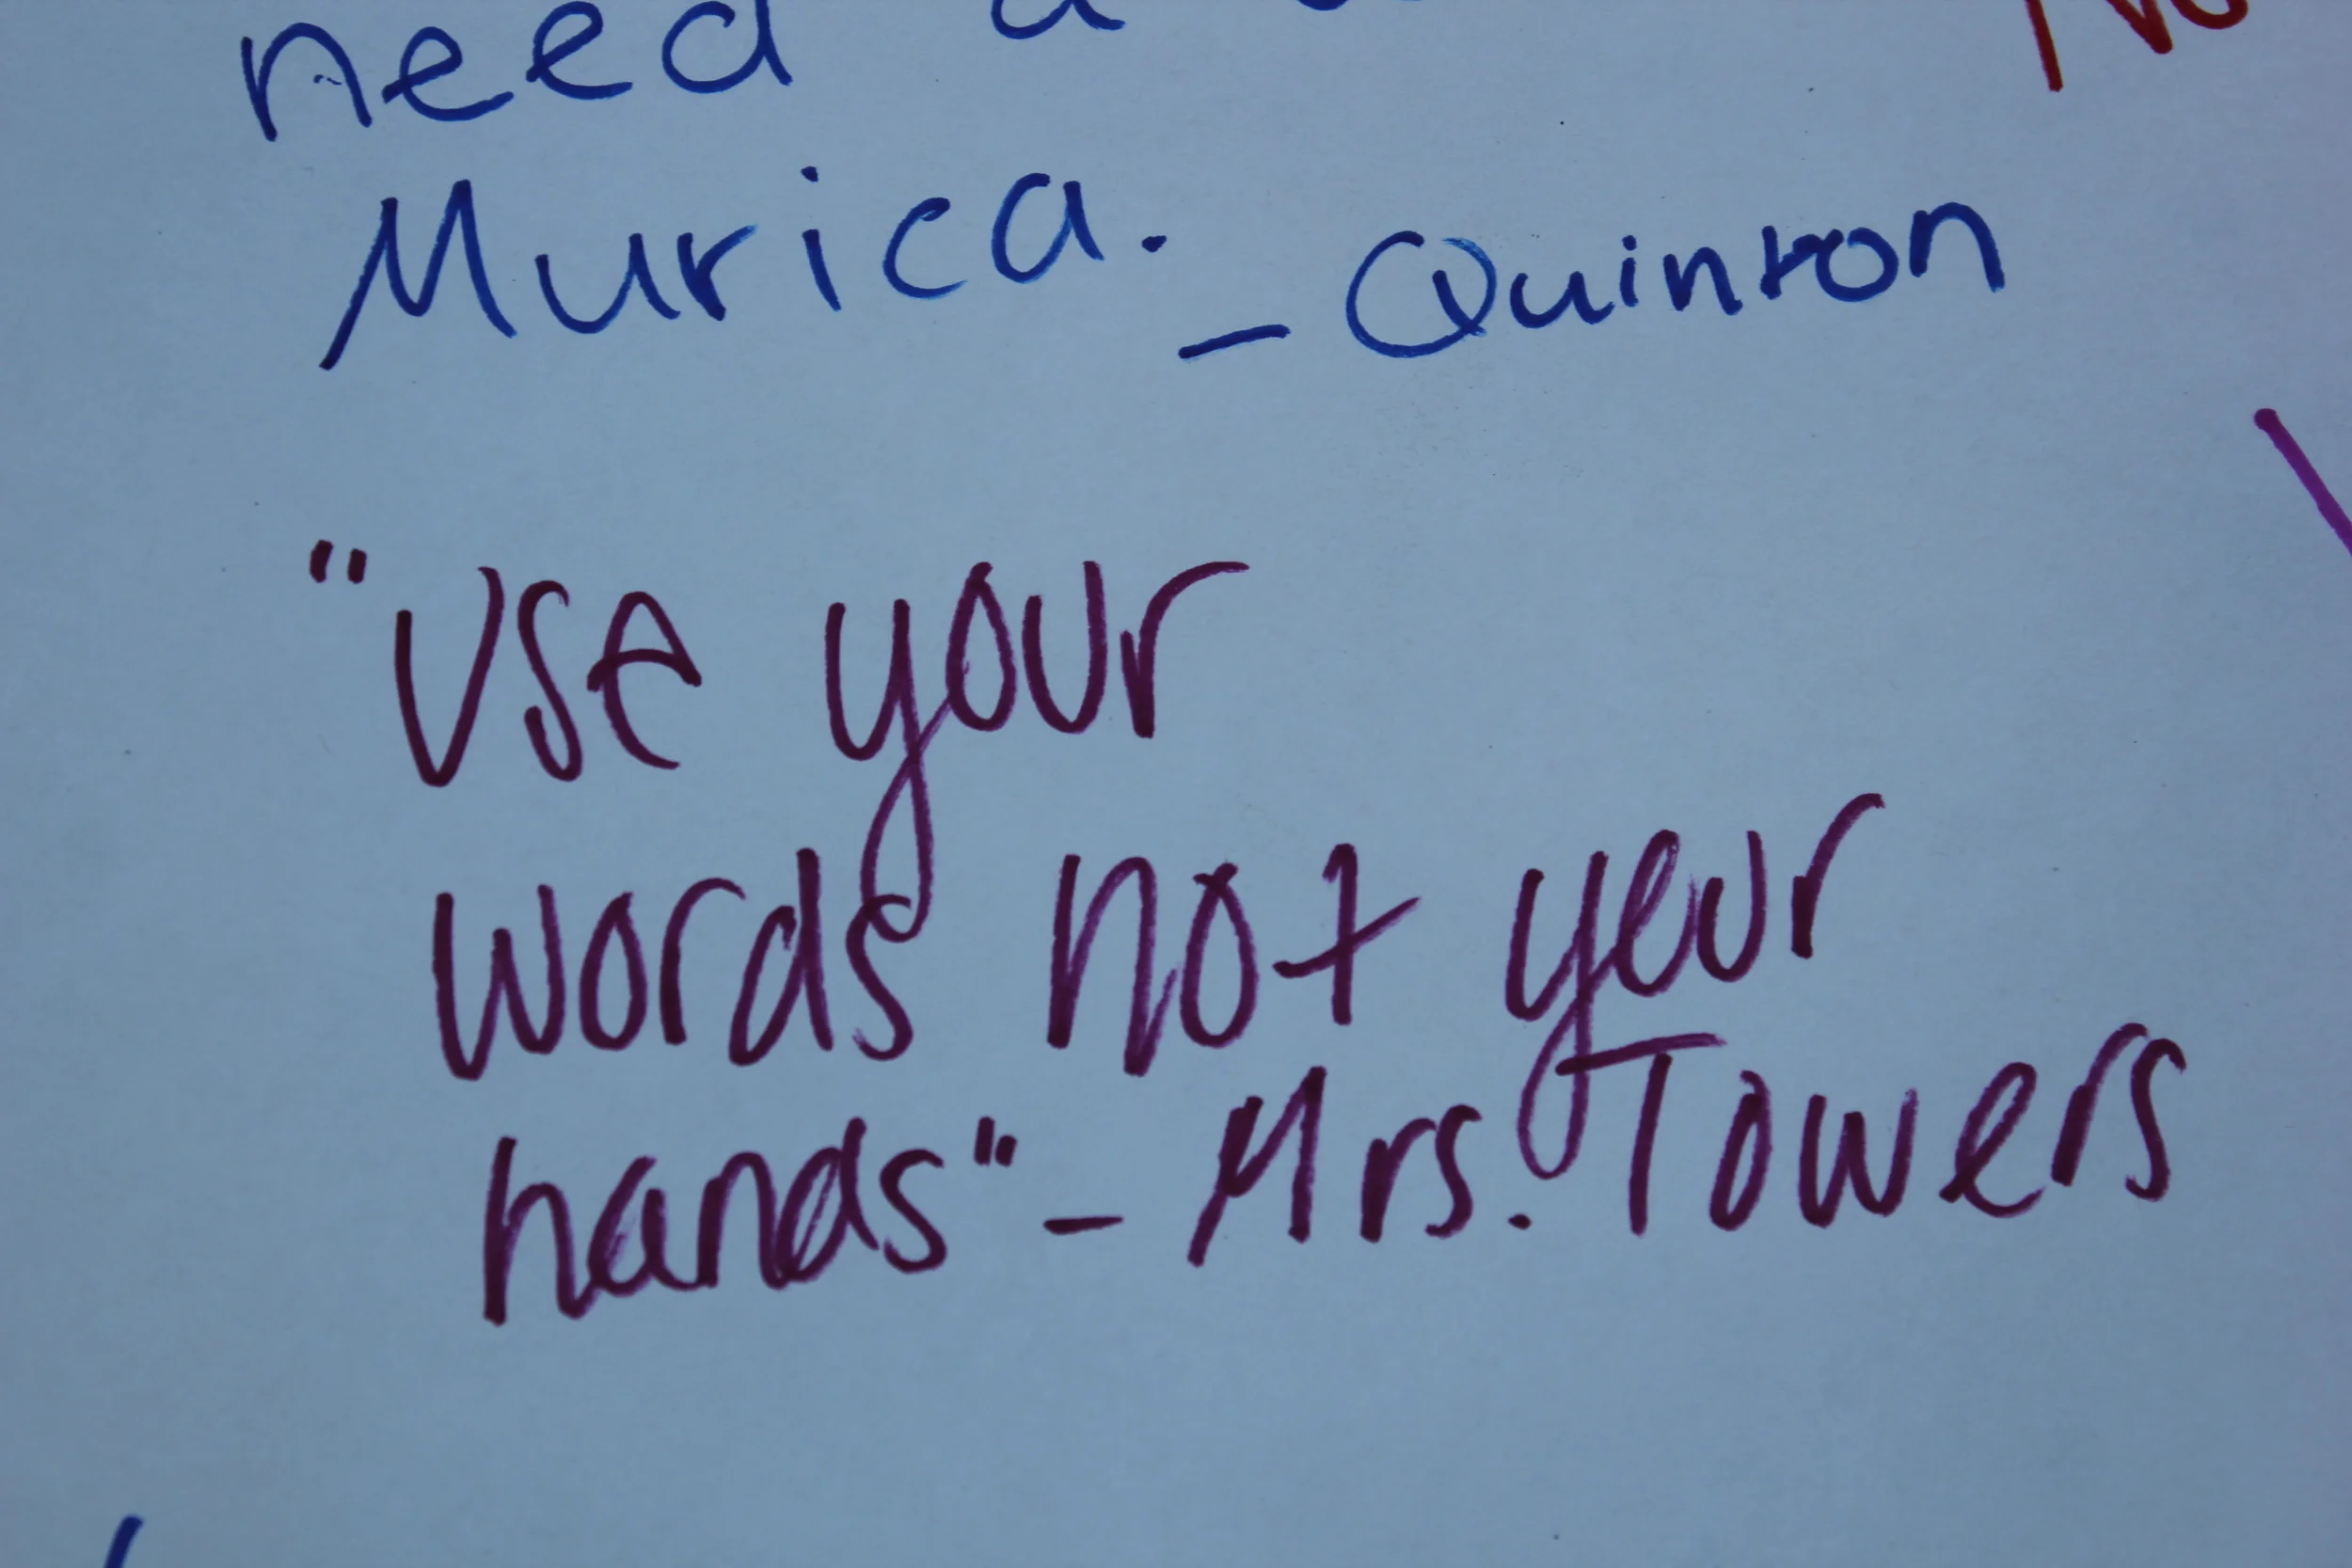 need a
Murica. - Quinton
"Use your
words not your
hands" - Mrs. Towers